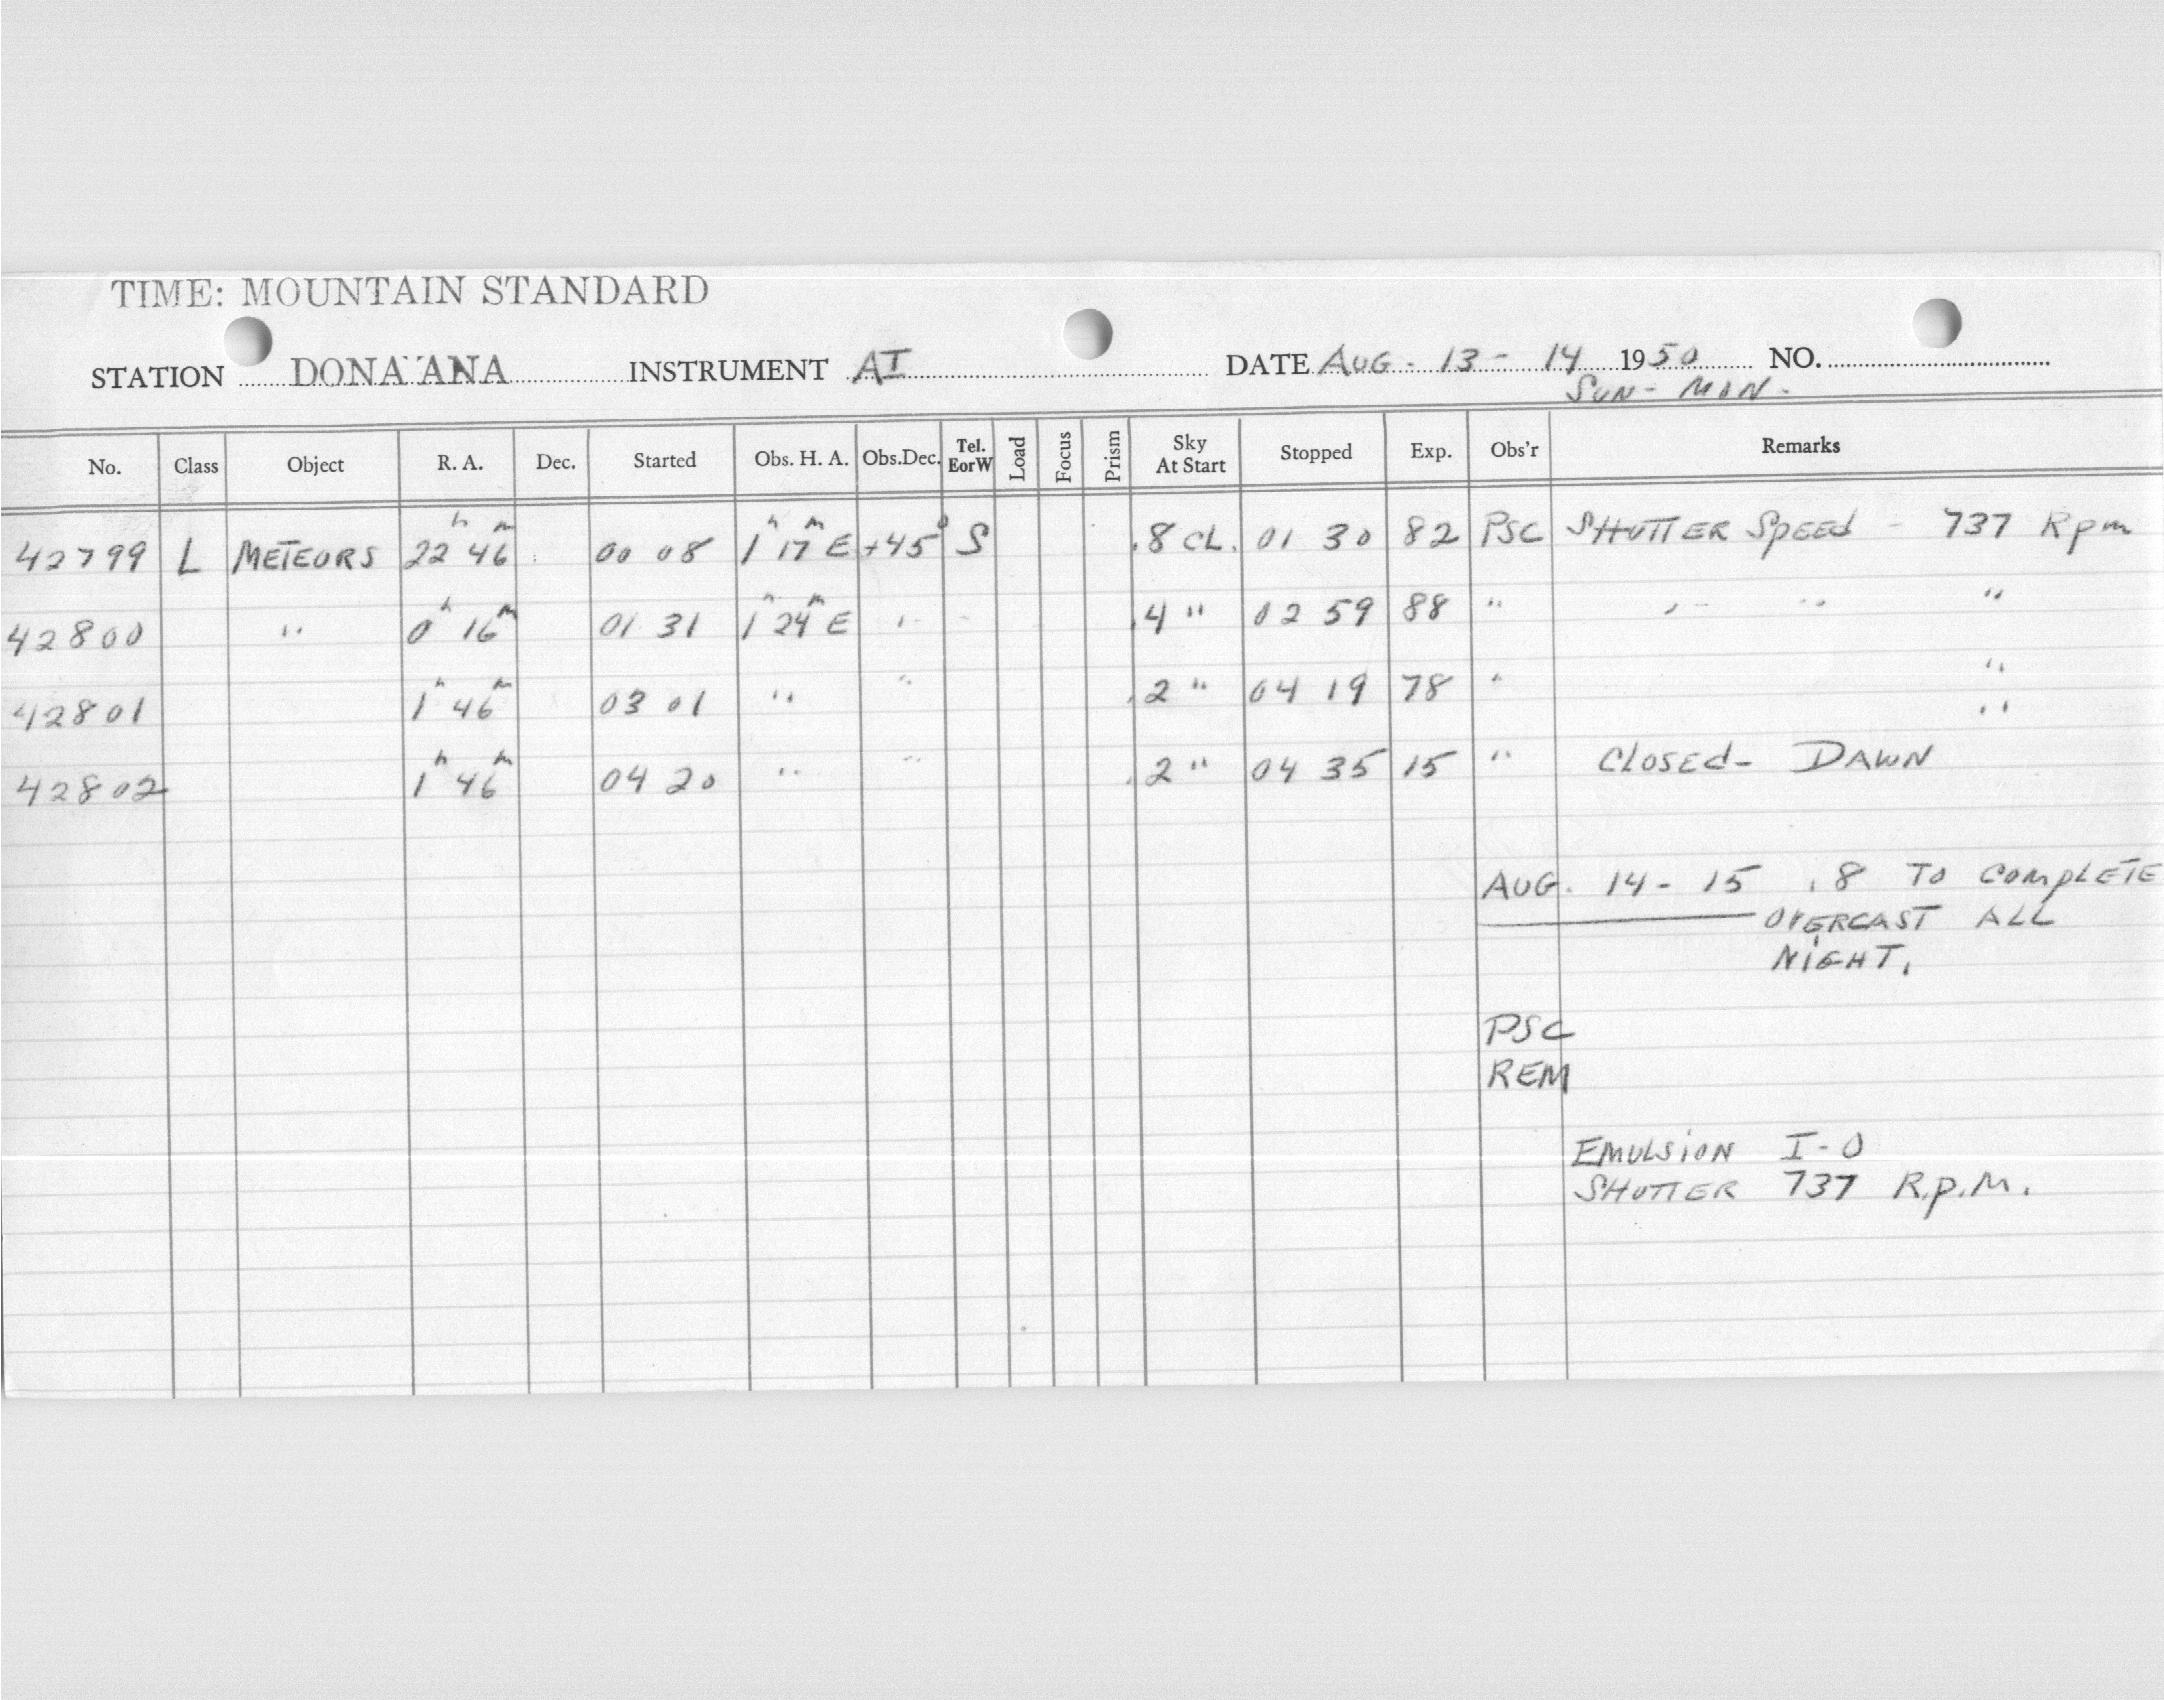 TIME: MOUNTAIN STANDARD
STATION DONA ANA INSTRUMENT AI DATE AUG. 13 - 14 1950 NO.
SUN - MON.
No. Class Object R. A. Dec. Started Obs. H. A. Obs.Dec. Tel. EorW Load Focus Prism Sky At Start Stopped Exp. Obs'r Remarks
42799 L METEORS 22h 46m 00 08 1h 17m E +45° S .8 CL. 01 30 82 PSC SHUTTER SPEED - 737 Rpm
42800 " 0h 16m 01 31 1h 24m E " .4 " 02 59 88 " " " "
42801 1h 46m 03 01 " " .2 " 04 19 78 " "
"
42802 1h 46m 04 20 " " .2 " 04 35 15 " CLOSED - DAWN
AUG. 14 - 15 .8 TO COMPLETE
OVERCAST ALL
NIGHT.
PSC
REM
EMULSION I-O
SHUTTER 737 R.P.M.